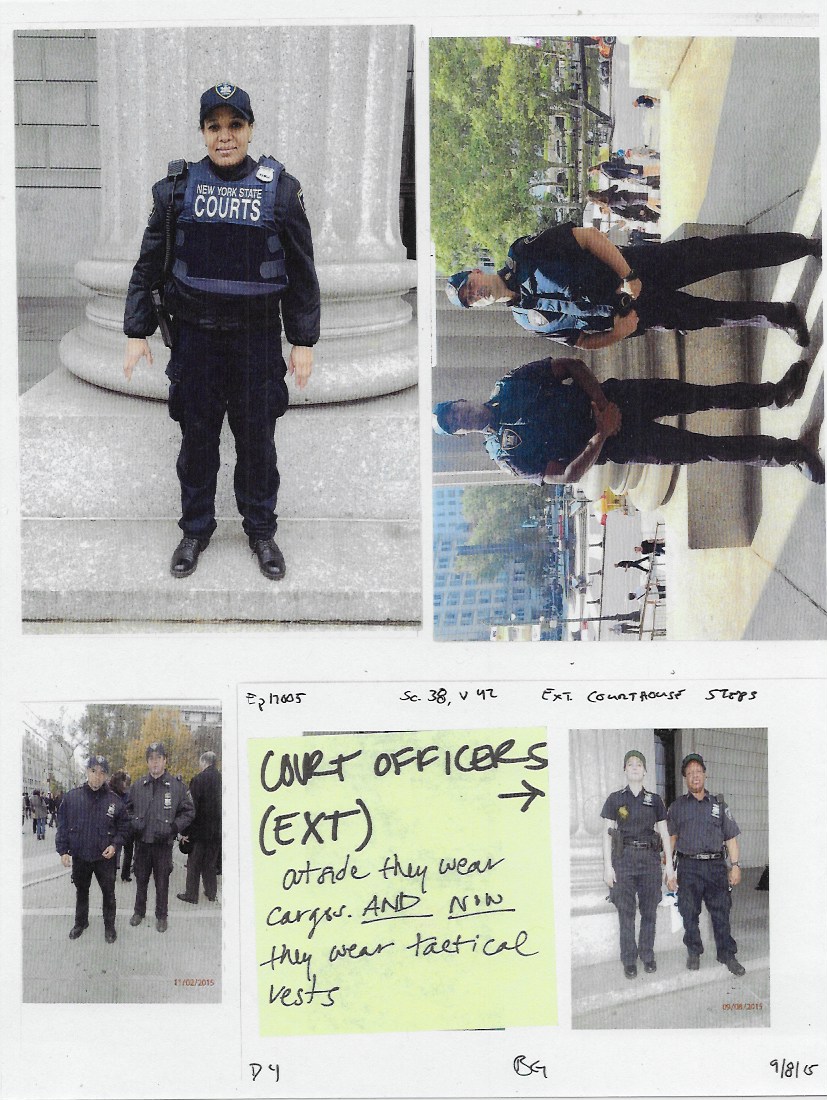 NEW YORK STATE
COURTS
Ep 17005 Sc. 38, V 42 EXT. COURTHOUSE STEPS
COURT OFFICERS
→
(EXT)
outside they wear
cargos. AND NOW
they wear tactical
vests
11/02/2015
09/08/2015
D4 BG 9/8/15